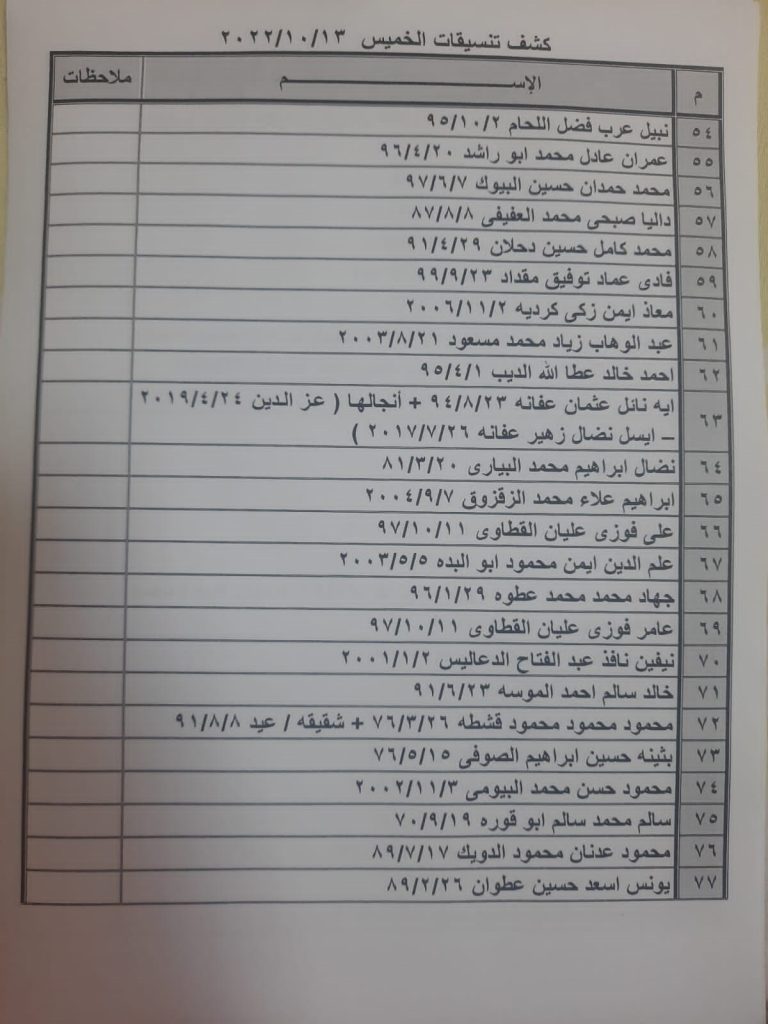 كشف تنسيقات الخميس ٢٠٢٢/١٠/١٣
م الإســـــــــــــــم ملاحظات
٥٤ نبيل عرب فضل اللحام ٩٥/١٠/٢
٥٥ عمران عادل محمد ابو راشد ٩٦/٤/٢٠
٥٦ محمد حمدان حسين البيوك ٩٧/٦/٧
٥٧ داليا صبحى محمد العفيفى ٨٧/٨/٨
٥٨ محمد كامل حسين دحلان ٩١/٤/٢٩
٥٩ فادى عماد توفيق مقداد ٩٩/٩/٢٣
٦٠ معاذ ايمن زكى كرديه ٢٠٠٦/١١/٢
٦١ عبد الوهاب زياد محمد مسعود ٢٠٠٣/٨/٢١
٦٢ احمد خالد عطا الله الديب ٩٥/٤/١
٦٣ ايه نائل عثمان عفانه ٩٤/٨/٢٣ + أنجالها ( عز الدين ٢٠١٩/٤/٢٤
– ايسل نضال زهير عفانه ٢٠١٧/٧/٢٦ )
٦٤ نضال ابراهيم محمد البيارى ٨١/٣/٢٠
٦٥ ابراهيم علاء محمد الزقزوق ٢٠٠٤/٩/٧
٦٦ على فوزى عليان القطاوى ٩٧/١٠/١١
٦٧ علم الدين ايمن محمود ابو البده ٢٠٠٣/٥/٥
٦٨ جهاد محمد محمد عطوه ٩٦/١/٢٩
٦٩ عامر فوزى عليان القطاوى ٩٧/١٠/١١
٧٠ نيفين نافذ عبد الفتاح الدعاليس ٢٠٠١/١/٢
٧١ خالد سالم احمد الموسه ٩١/٦/٢٣
٧٢ محمود محمود محمود قشطه ٧٦/٣/٢٦ + شقيقه / عيد ٩١/٨/٨
٧٣ بثينه حسين ابراهيم الصوفى ٧٦/٥/١٥
٧٤ محمود حسن محمد البيومى ٢٠٠٢/١١/٣
٧٥ سالم محمد سالم ابو قوره ٧٠/٩/١٩
٧٦ محمود عدنان محمود الدويك ٨٩/٧/١٧
٧٧ يونس اسعد حسين عطوان ٨٩/٢/٢٦